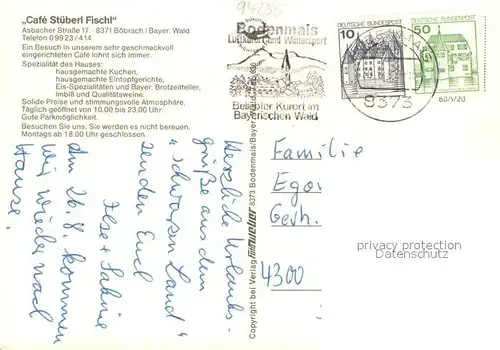 „Café Stüberl Fischl"
Asbacher Straße 17 · 8371 Böbrach / Bayer. Wald
Telefon 09923 / 414
Ein Besuch in unserem sehr geschmeckvoll
eingerichteten Café lohnt sich immer.
Spezialität des Hauses:
hausgemachte Kuchen,
hausgemachte Eintopfgerichte,
Eis-Spezialitäten und Bayer. Brotzeitteller,
Imbiß und Qualitätsweine.
Solide Preise und stimmungsvolle Atmosphäre.
Täglich geöffnet von 10.00 bis 23.00 Uhr.
Gute Parkmöglichkeit.
Besuchen Sie uns, Sie werden es nicht bereuen.
Montags ab 18.00 Uhr geschlossen.
Herzliche Urlaubs-
grüße aus dem
"schwarzen Land"
senden Euch
Ilse + Sabine
Am 26.8. kommen
wir wieder nach
Hause.
Copyright bei Verlag 8373 Bodenmais/Bayer
Bodenmais
Luftkurort und Wintersport
Beliebter Kurort im
Bayerischen Wald
10
DEUTSCHE BUNDESPOST
50
DEUTSCHE BUNDESPOST
8373
Familie
Egon
Gerh.
4300
privacy protection
Datenschutz